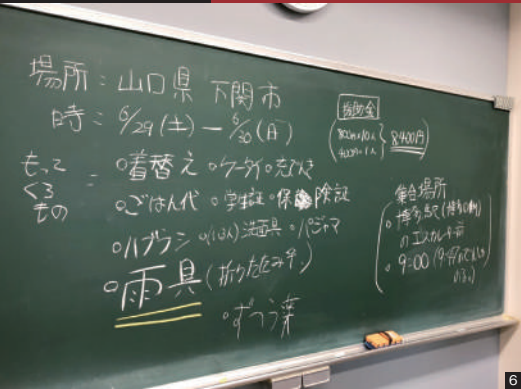 場所：山口県 下関市
時：6/29(土)－6/30(日)
もって
くる
もの
＝ ○着替え ○ケータイ ○充でんき
○ごはん代 ○学生証 ○保険証
○ハブラシ ○(1人1人)洗面具 ○パジャマ
○雨具(折りたたみ傘)
○ずつう薬
援助金
800円×10人
400円×1人
8,400円
集合場所
○博多駅
のエスカレーター前
○9:00
6